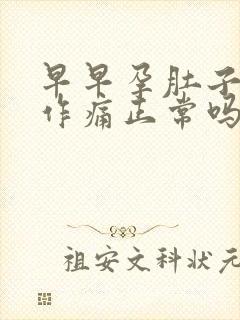 早早孕肚子
作痛正常吗
祖安文科状元